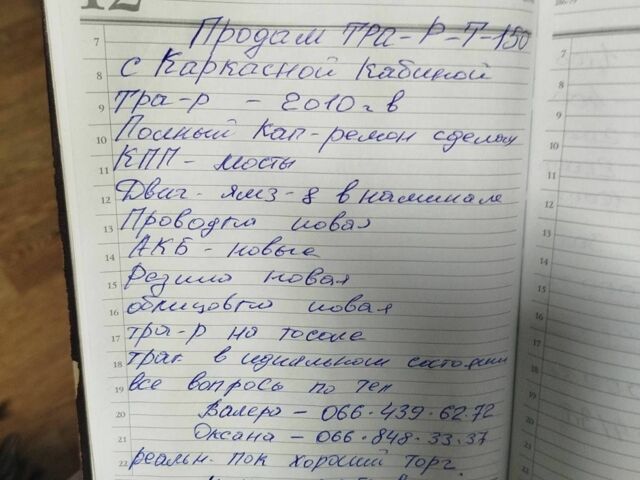 12
7 Продам тра-р-Т-150
8 с Каркасной Кабиной
9 тра-р - 2010 г в
10 Полный кап-ремон сделан
11 КПП - мосты
12 Двиг. ямз-8 в наминале
13 Проводка новая
14 АКБ - новые
15 Резина новая
16 облицовка новая
17 тра-р на тосоле
18 трак в идиальном состоянии
19 все вопросы по тел
20 Валера - 066.439.62.72
21 Оксана - 066.848.33.37
22 реальн. пок хороший торг.
7
8
9
10
11
12
13
14
15
16
17
18
19
20
21
22